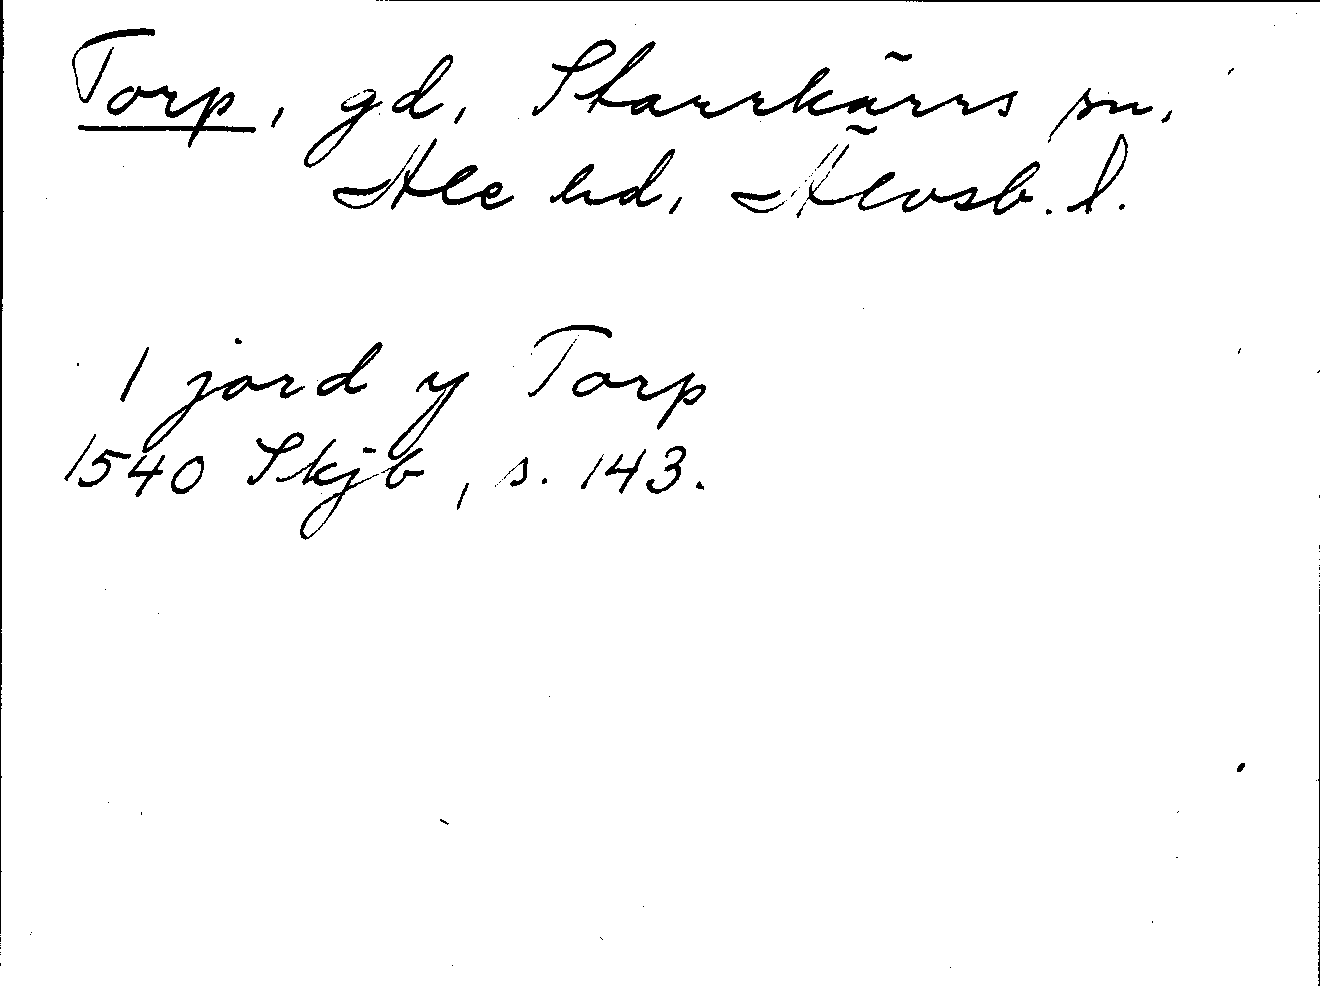 Torp, gd, Starrkärrs sn,
Ale hd, Älvsb. l.
1 jord y Torp
1540 Skjb, s. 143.